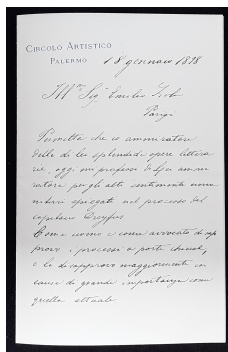 CIRCOLO ARTISTICO
PALERMO
18 gennaro 1898
Ill.mo Sig. Emilio Zola
Parigi
Permetta che io ammiratore
delle di lei splendide opere lettera
rie, oggi mi professi di Lei ammi
ratore per gli alti sentimenti uma
nitari spiegati nel processo del
capitano Dreyfus
Come uomo e come avvocato di sap
provo i processi a porte chiuse,
e li disapprovo maggiormente in
cause di grande importanza come
quella attuale.